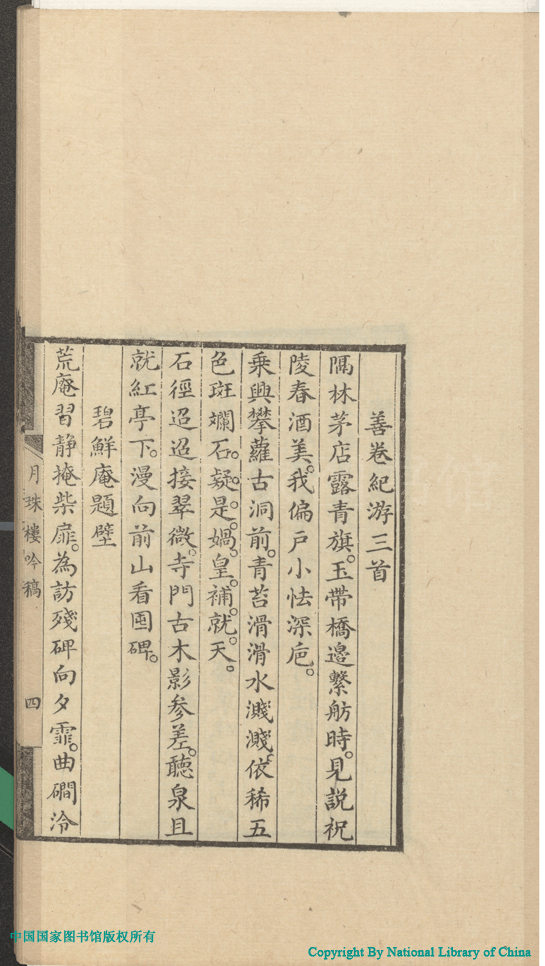 善卷紀游三首
隔林茅店露青旗。玉帶橋邊繫舫時。見説祝
陵春酒美。我偏戶小怯深巵。
乘興攀蘿古洞前。青苔滑滑水濺濺。依稀五
色斑斕石。疑是媧皇補就天。
石徑迢迢接翠微。寺門古木影參差。聽泉且
就紅亭下。漫向前山看囤碑。
碧鮮庵題壁
荒庵習靜掩柴扉。為訪殘碑向夕霏。曲磵泠
月珠樓吟稿
四
中国国家图书馆版权所有
Copyright By National Library of China